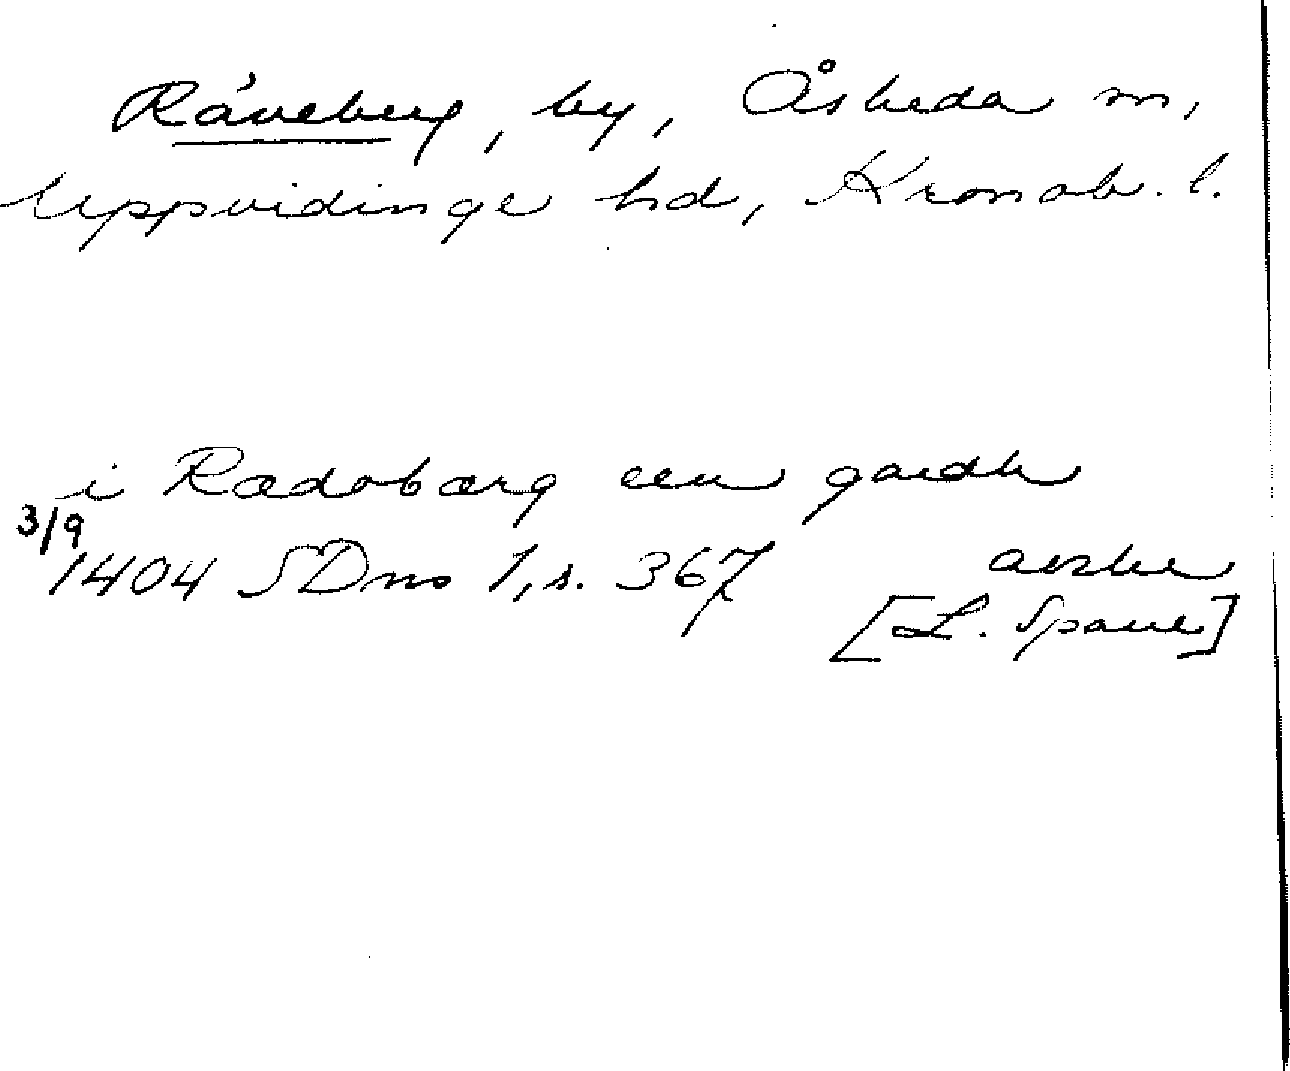 Råveberg, by, Åsheda sn,
Uppvidinge hd, Kronob. l.
i Rædobærg een gardh
3/9
1404 SDns 1, s. 367 avskr
[L. Spare]